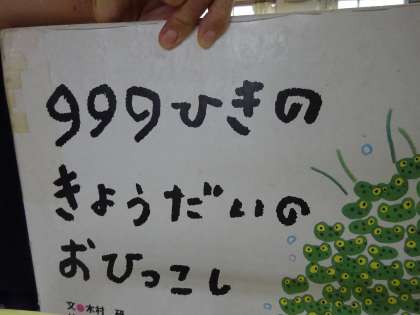 999ひきの
きょうだいの
おひっこし
文●木村 研